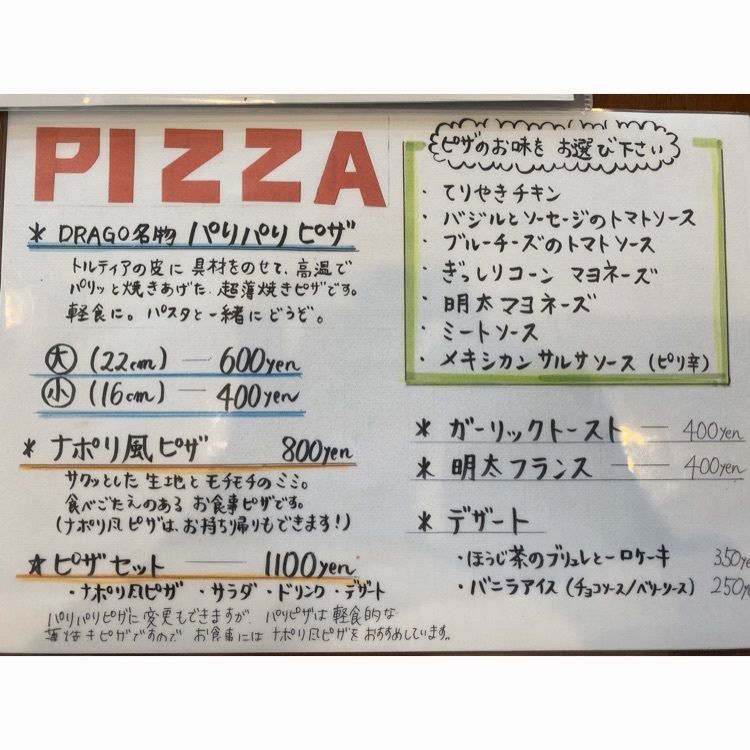 PIZZA
* DRAGO名物 パリパリ ピザ
トルティアの皮に 具材をのせて、高温で
パリッと焼きあげた 超薄焼きピザです。
軽食に。パスタと一緒にどうぞ。
大 (22cm) — 600yen
小 (16cm) — 400yen
* ナポリ風ピザ 800yen
サクッとした 生地と モチモチのミミ。
食べごたえのある お食事ピザです。
(ナポリ風ピザは、お持ち帰りもできます!)
* ピザセット — 1100yen
・ナポリ風ピザ ・サラダ ・ドリンク ・デザート
パリパリピザに変更もできますが、パリピザは軽食的な
薄焼きピザですので お食事には ナポリ風ピザを おすすめしています。
ピザのお味を お選び下さい
・てりやきチキン
・バジルとソーセージのトマトソース
・ブルーチーズのトマトソース
・ぎっしりコーン マヨネーズ
・明太マヨネーズ
・ミートソース
・メキシカンサルサソース (ピリ辛)
* ガーリックトースト — 400yen
* 明太フランス — 400yen
* デザート
・ほうじ茶のブリュレと一ロケーキ 350ye
・バニラアイス (チョコソース/ベリーソース) 250ye